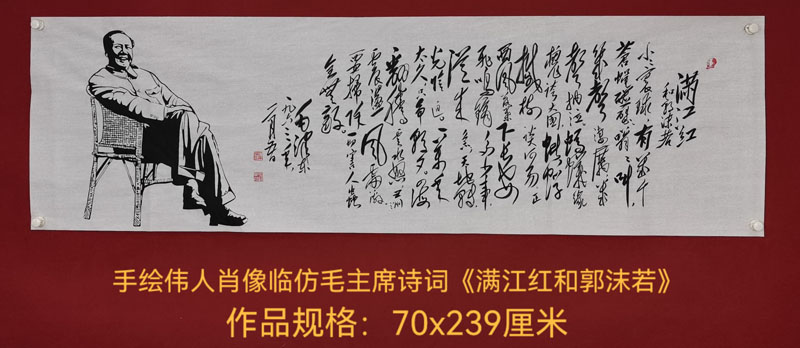 满江红
和郭沫若
小小寰球有几个
苍蝇碰壁嗡嗡叫
几声凄厉几
声抽泣蚂蚁缘
槐夸大国蚍蜉
撼树谈何易正
西风落叶下长安
飞鸣镝多少事
从来急天地转
光阴迫一万年
太久只争朝夕四海
翻腾云水怒五洲
震荡风雷激
要扫除一切害人虫
全无敌
毛泽东
一九六三年
手绘伟人肖像临仿毛主席诗词《满江红和郭沫若》
作品规格：70x239厘米